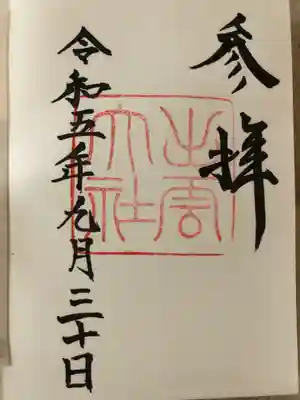 参拝
出雲
大社
令和五年九月三十日